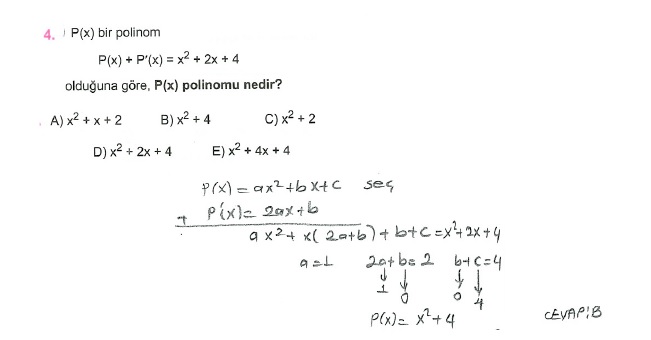 4. P(x) bir polinom
P(x) + P'(x) = x² + 2x + 4
olduğuna göre, P(x) polinomu nedir?
A) x² + x + 2 B) x² + 4 C) x² + 2
D) x² + 2x + 4 E) x² + 4x + 4
P(x) = ax² + bx + c seç
+ P'(x) = 2ax + b
ax² + x(2a+b) + b+c = x² + 2x + 4
a = 1 2a + b = 2 b + c = 4
↓ ↓ ↓ ↓
1 0 0 4
P(x) = x² + 4 CEVAP: B